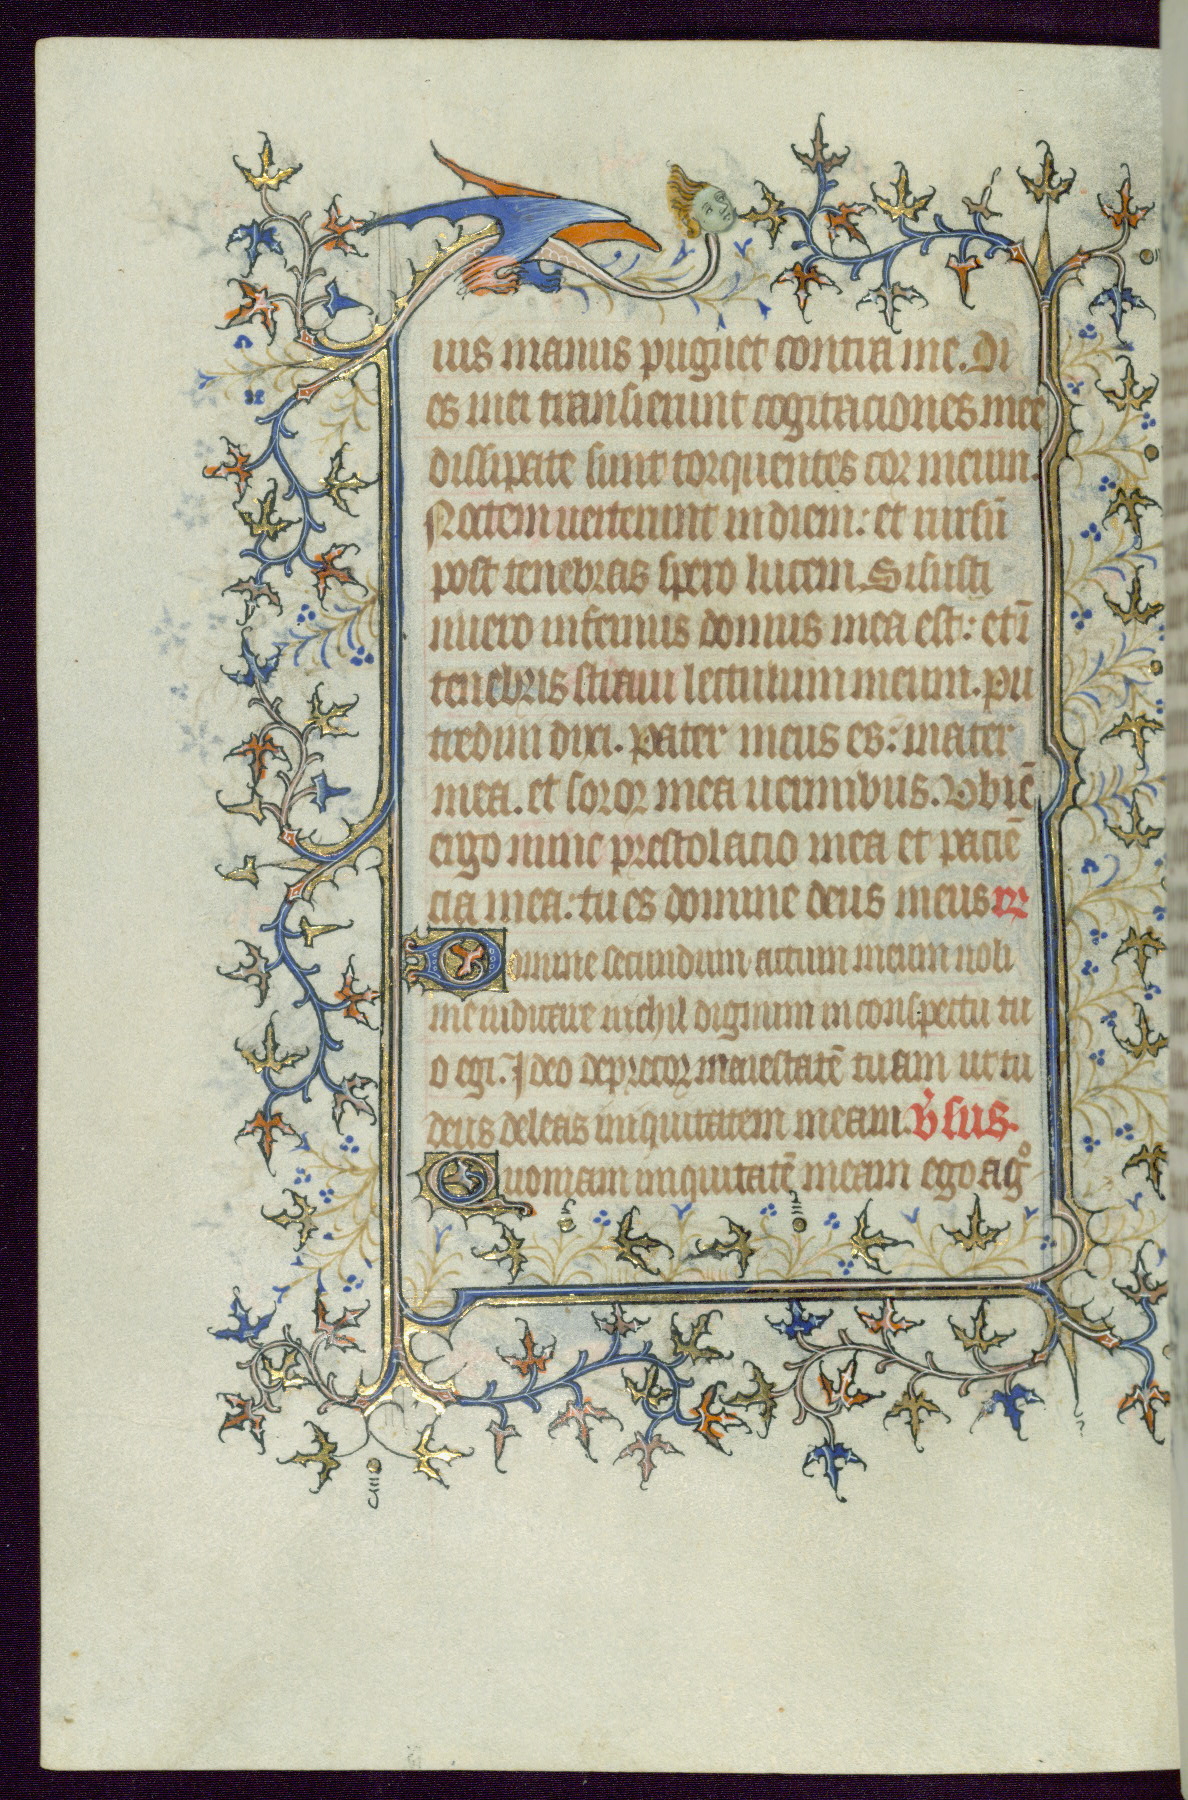 uis manus pugnet contra me. Di
es mei transierunt cogitaciones mee
dissipate sunt torquentes cor meum.
Noctem uerterunt in diem: et rursū
post tenebras spero lucem. Si susti
nuero infernus domus mea est: et ī
tenebris straui lectulum meum. pu
tredini dixi. pater meus es: mater
mea. et soror mea uermibus. Vbi ē
ergo nunc prestolatio mea et paciē
cia mea: tu es domine deus meus
Domine secundum actum meum noli
me iudicare nichil dignum in conspectu tu
o egi. Ideo deprecor maiestatē tuam ut tu
deus deleas iniquitatem meam. v̉sus.
Quoniam iniquitatē meam ego agͦ